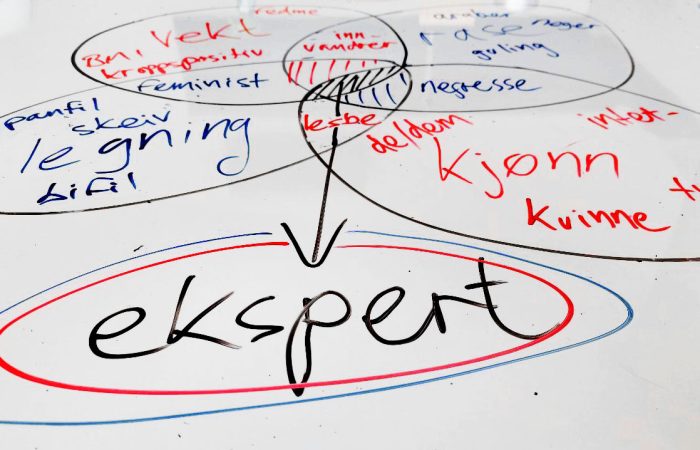 vekt
BMI
kroppspositiv
feminist
inn-
vandrer
araber
rase
neger
guling
negresse
panfil
skeiv
legning
bifil
lesbe
de/dem
kjønn
inter-
kvinne
ekspert